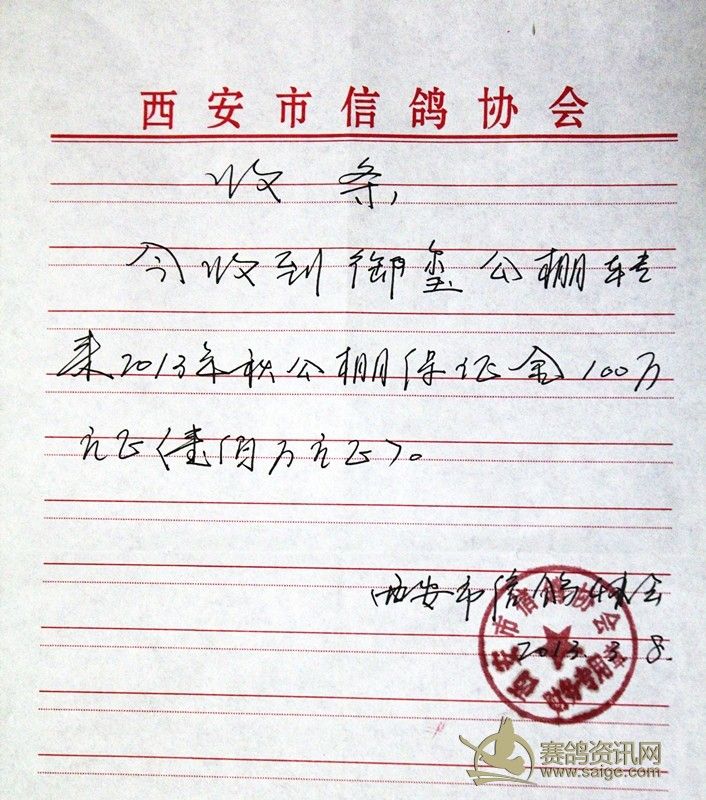 西安市信鸽协会
收条
今收到御玺公棚转
来2013年秋公棚保证金100万
元正(壹佰万元正)。
西安市信鸽协会
2013.3.8.
西安市信鸽协会
财务专用章
赛鸽资讯网
www.saige.com